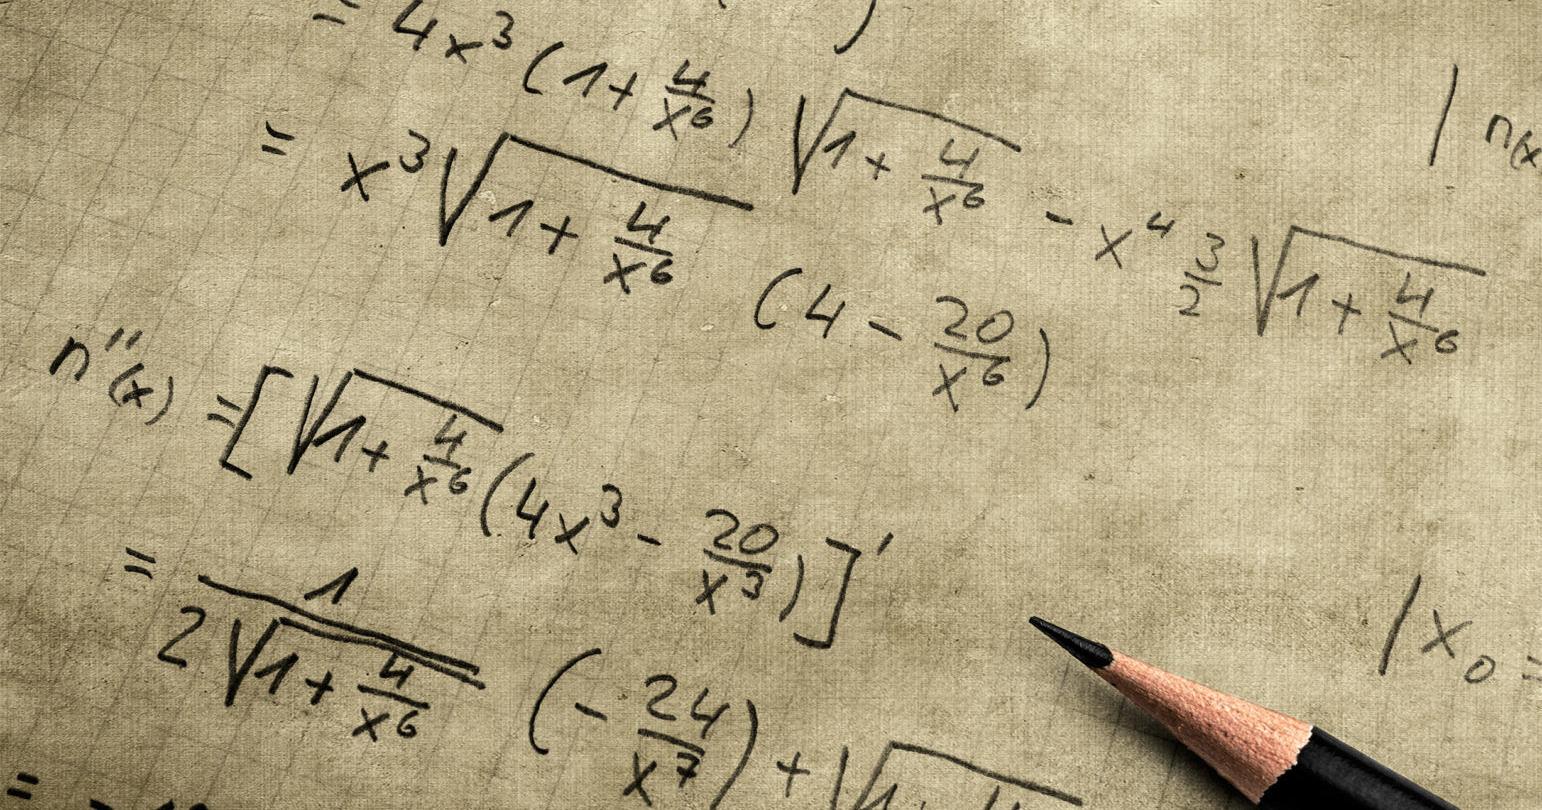 = 4x³(1+4/x⁶)√(1+4/x⁶) - x⁴ 3/2 √(1+4/x⁶)
= x³√(1+4/x⁶) (4 - 20/x⁶)
n''(x) = [√(1+4/x⁶)(4x³ - 20/x³)]'
= 1/(2√(1+4/x⁶)) (-24/x⁷) + √
=
| n(x
| x₀ =